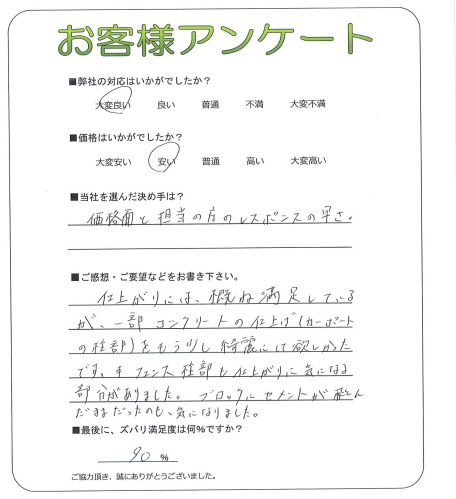 お客様アンケート
■弊社の対応はいかがでしたか？
大変良い 良い 普通 不満 大変不満
■価格はいかがでしたか？
大変安い 安い 普通 高い 大変高い
■当社を選んだ決め手は？
価格面と担当の方のレスポンスの早さ。
■ご感想・ご要望などをお書き下さい。
仕上がりには、概ね満足している
が、一部コンクリートの仕上げ(カーポート
の柱部)をもう少し綺麗にして欲しかった
です。 フェンス柱部も仕上がりに気になる
部分がありました。ブロックにセメントが飛とん
だままだったのも、気になりました。
■最後に、ズバリ満足度は何%ですか？
90 %
ご協力頂き、誠にありがとうございました。